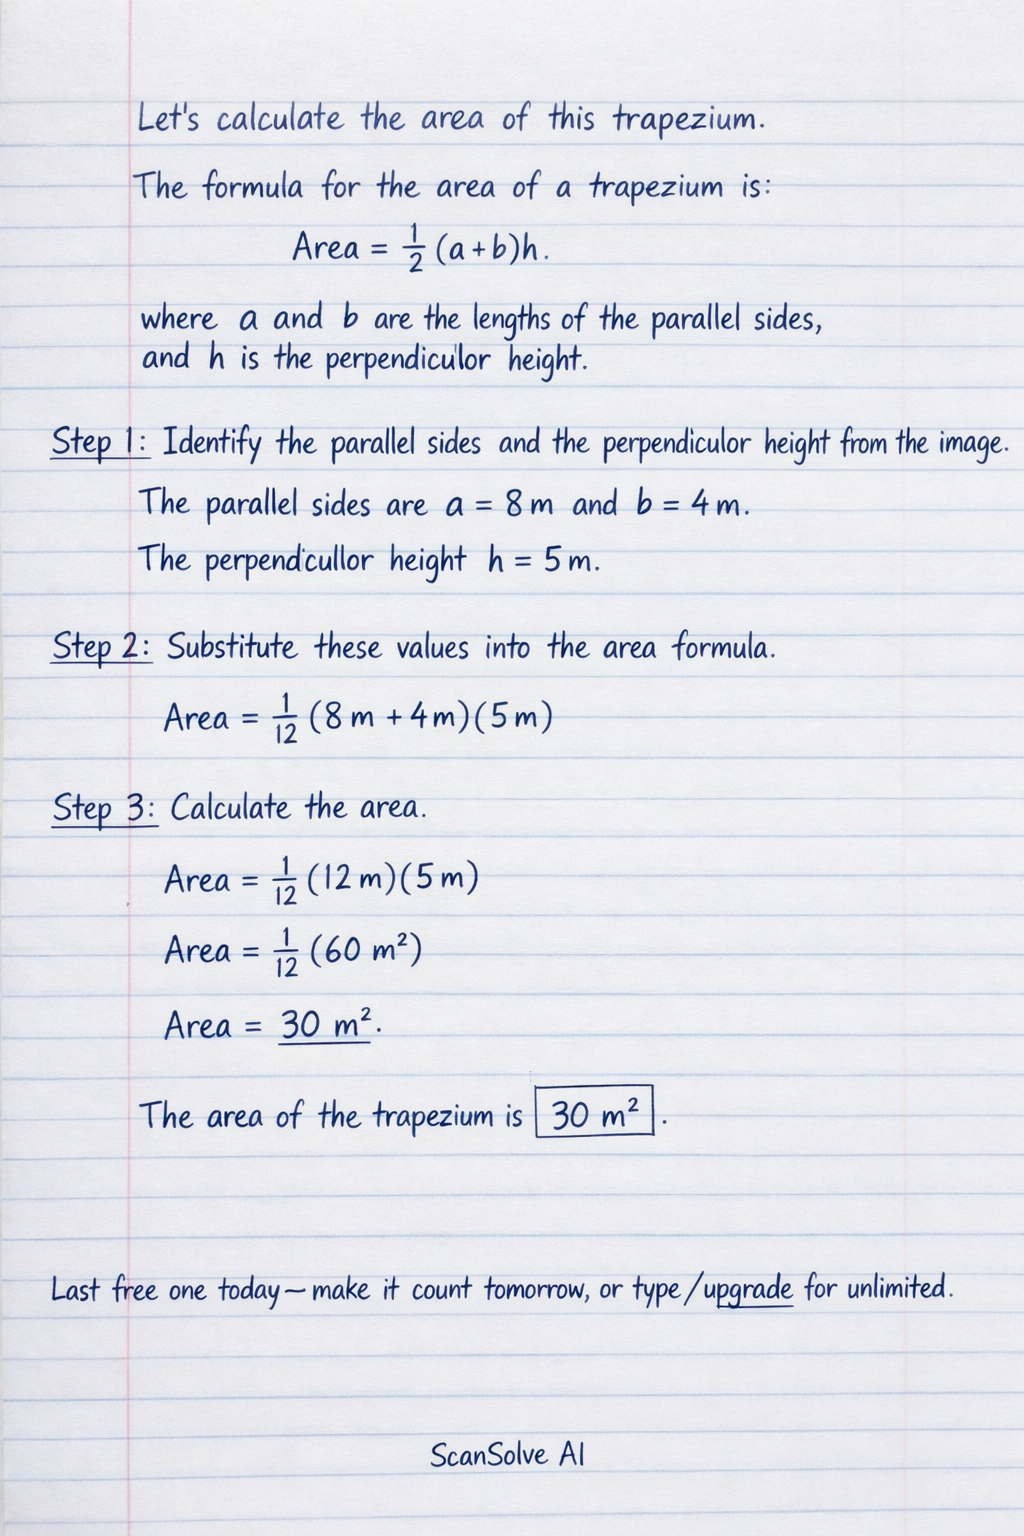 Let's calculate the area of this trapezium.
The formula for the area of a trapezium is:
Area = 1/2 (a+b)h.
where a and b are the lengths of the parallel sides,
and h is the perpendiculor height.
Step 1: Identify the parallel sides and the perpendiculor height from the image.
The parallel sides are a = 8 m and b = 4 m.
The perpendicullor height h = 5 m.
Step 2: Substitute these values into the area formula.
Area = 1/12 (8 m + 4 m)(5 m)
Step 3: Calculate the area.
Area = 1/12 (12 m)(5 m)
Area = 1/12 (60 m²)
Area = 30 m².
The area of the trapezium is 30 m².
Last free one today—make it count tomorrow, or type /upgrade for unlimited.
ScanSolve AI